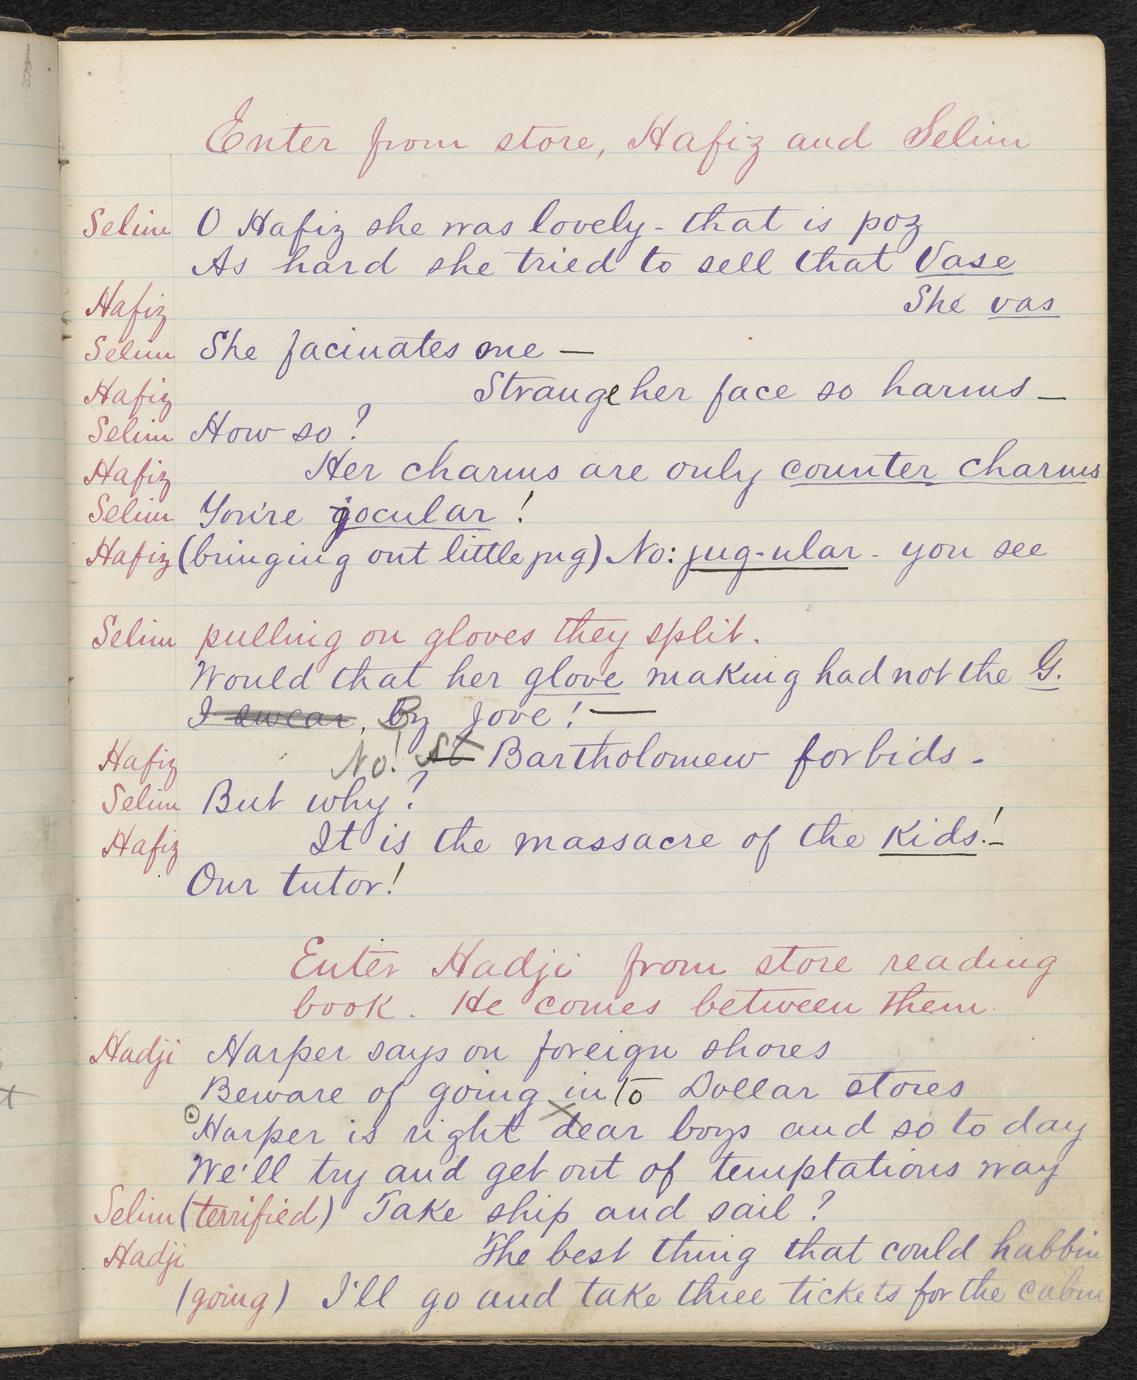 Enter from store, Hafiz and Selim
Selim O Hafiz she was lovely - that is poz
As hard she tried to sell that Vase
Hafiz She vas
Selim She facinates me —
Hafiz Strange her face so harms —
Selim How so?
Hafiz Her charms are only counter charms
Selim You're jocular!
Hafiz (bringing out little jug) No: jug-ular - you see
Selim pulling on gloves they split.
Would that her glove making had not the G.
I swear, By Jove! —
Hafiz No! St Bartholomew forbids -
Selim But why?
Hafiz It is the massacre of the Kids! -
Our tutor!
Enter Hadji from store reading
book. He comes between them.
Hadji Harper says on foreign shores
Beware of going in to Dollar stores
Harper is right dear boys and so to day
We'll try and get out of temptations way
Selim (terrified) Take ship and sail?
Hadji The best thing that could habbin
(going) I'll go and take three tickets for the cabin